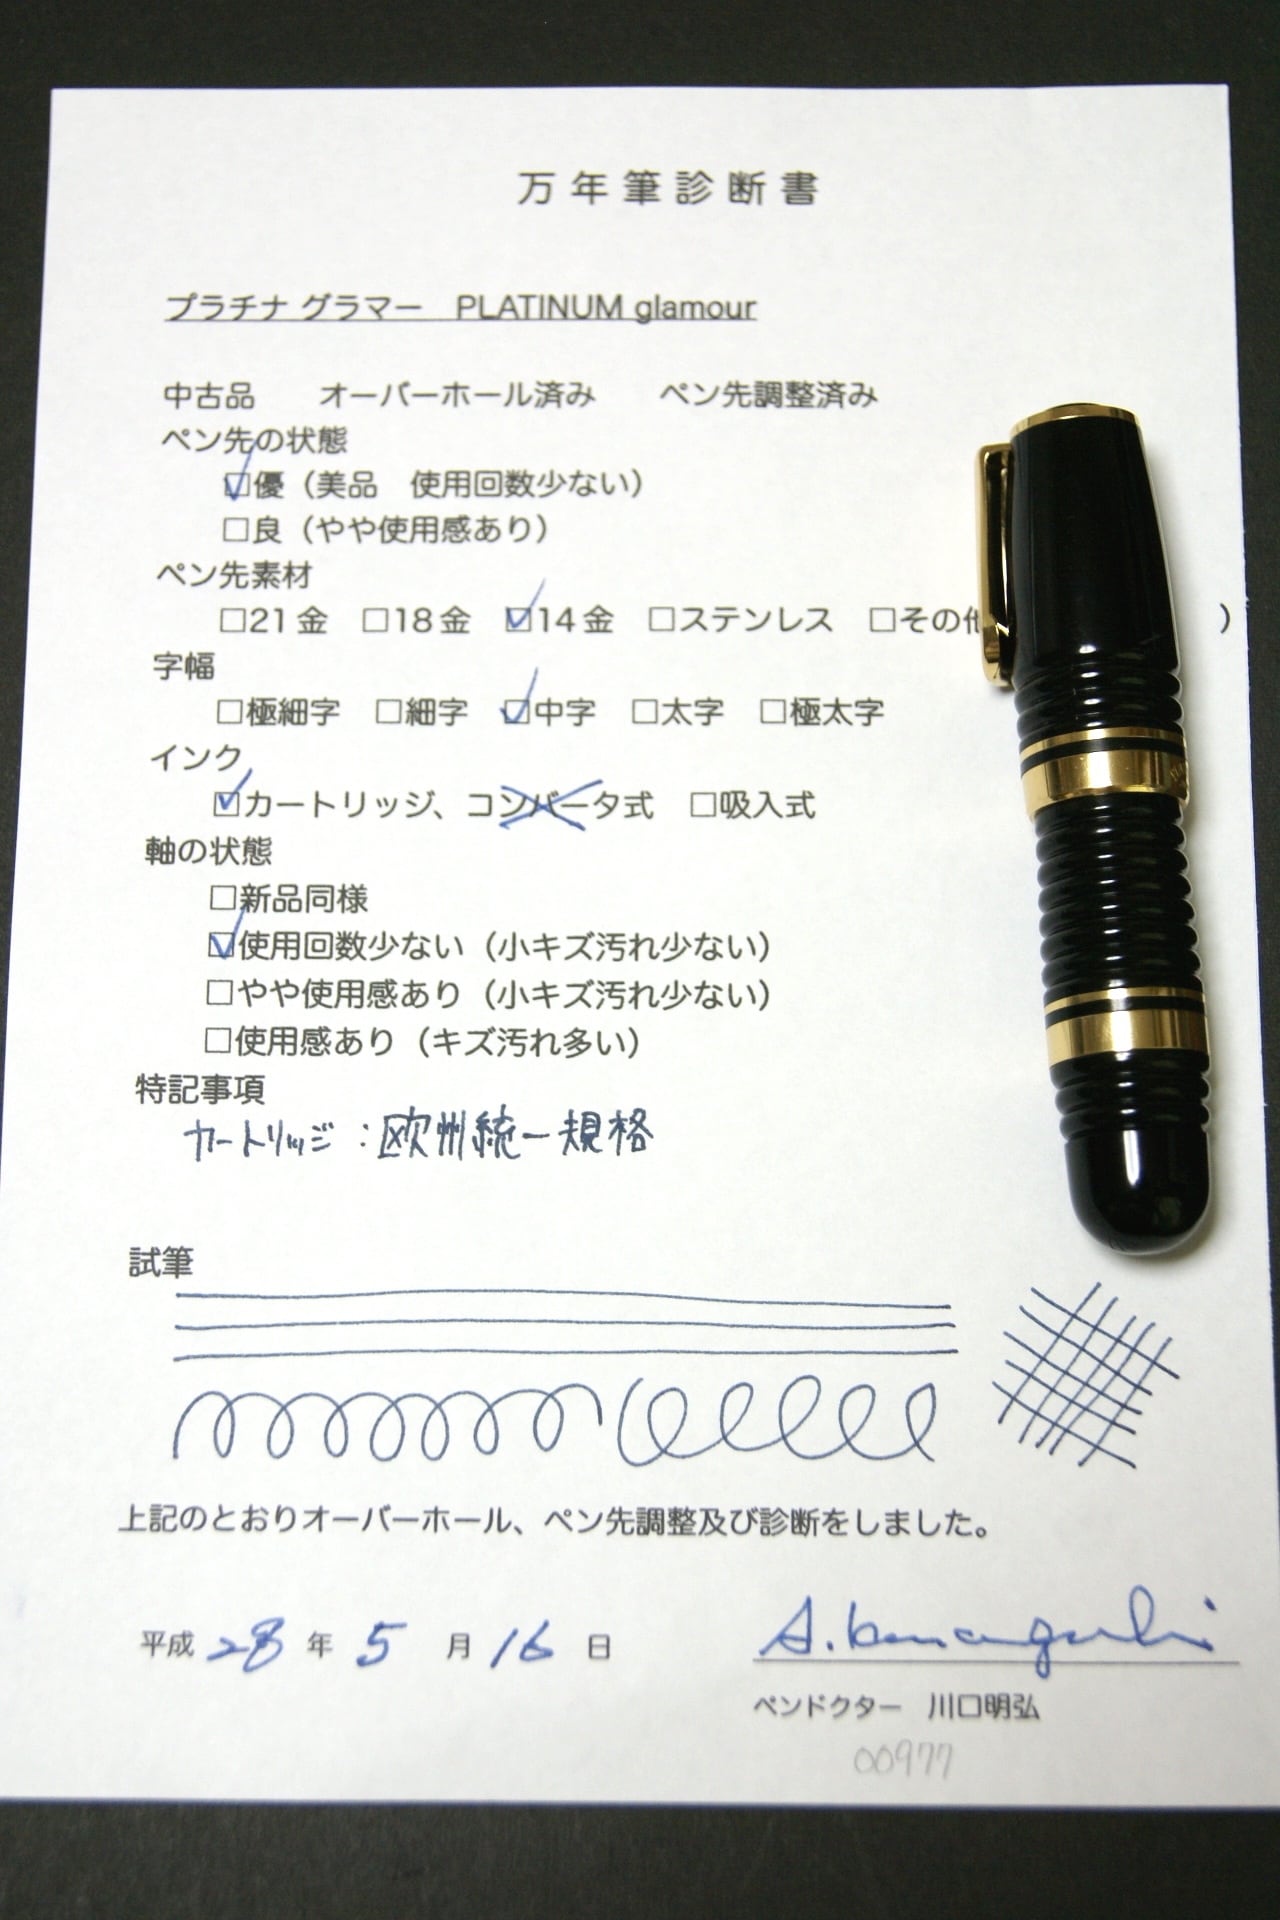 万年筆診断書
プラチナ グラマー　PLATINUM glamour
中古品　　オーバーホール済み　　ペン先調整済み
ペン先の状態
☑優（美品　使用回数少ない）
□良（やや使用感あり）
ペン先素材
□21金　□18金　☑14金　□ステンレス　□その他　）
字幅
□極細字　□細字　☑中字　□太字　□極太字
インク
☑カートリッジ、コンバータ式　□吸入式
軸の状態
□新品同様
☑使用回数少ない（小キズ汚れ少ない）
□やや使用感あり（小キズ汚れ少ない）
□使用感あり（キズ汚れ多い）
特記事項
カートリッジ：欧州統一規格
試筆
上記のとおりオーバーホール、ペン先調整及び診断をしました。
平成 28 年 5 月 16 日
ペンドクター　川口明弘
00977